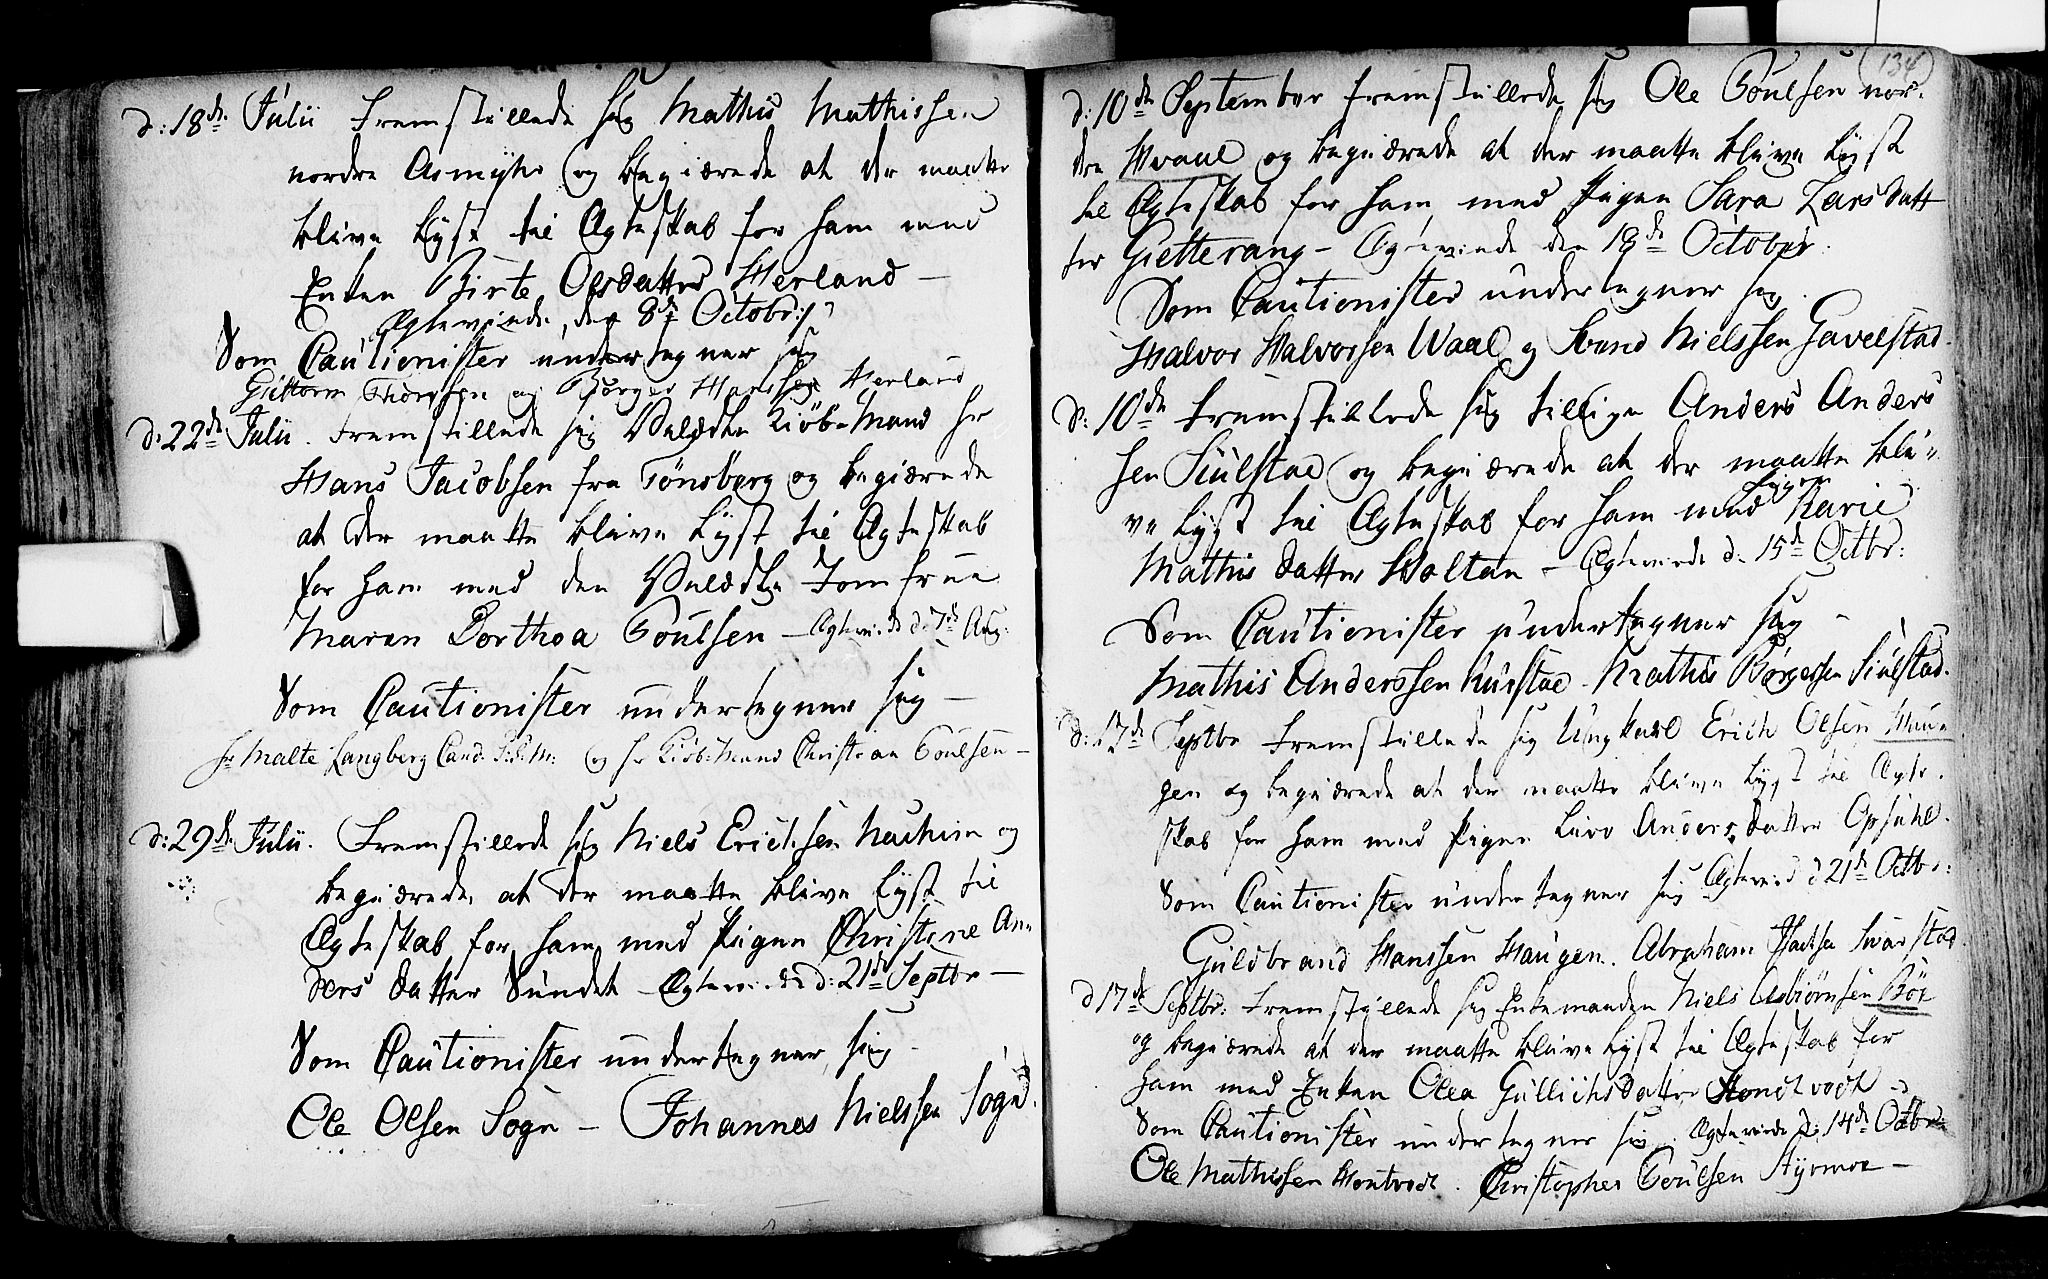 d: 18de Julii Fremstillede sig Mathis Mathissen
nordre Asmyhr og begiærede at der maatte
blive Lyst til Ægteskab for ham med
Enken Birte Olsdatter Herland —
Ægteviede den 8de Octobr:
Som Cautionister undertegner sig
Guttorm Thoresen og Børger Hanssen Herland
d: 22de Julii. Fremstillede sig Velædle Kiöb-Mand Hr
Hans Jacobsen fra Tönsberg og begiærede
at der maatte blive Lyst til Ægteskab
for ham med den Velædle Jomfrue
Maren Dorthea Poulsen — Ægteviede d: 7de Aug:
Som Cautionister undertegner sig —
Hr Malte Langberg Cand: S:S:M: og Hr Kiöb:Mand Christian Poulsen —
d: 29de Julii. Fremstillede sig Niels Erichsen og
begiærede, at der maatte blive Lyst til
Ægteskab for ham med Pigen Christine An-
ders datter Sundet — Ægteviede d: 21de Septbr —
Som Cautionister undertegner sig —
Ole Olsen Sogn — Johannes Nielssen Sogn.
134
d: 10de September Fremstillede sig Ole Poulsen nor-
dre Hvaal og begiærede at der maatte blive Lyst
til Ægteskab for ham med Pigen Sara Larsdatt
ter Gietterang — Ægteviede den 18de October.
Som Cautionister undertegner sig
Halvor Halvorsen Waal og Svend Nielssen Gavelstad.
d: 10de Fremstillede sig tillige Anders Anders
sen Siulstad og begiærede at der maatte bli-
ve Lyst til Ægteskab for ham med Pigen Karie
Mathis datter Holtan — Ægteviede d: 15de Octbr:
Som Cautionister undertegner sig —
Mathis Anderssen . Mathis Børgersen Siulstad.
d: 17de Septbr Fremstillede sig Ungkarl Erich Olsen Hau-
gen og begiærede at der maatte blive Lyst til Ægte-
skab for ham med Pigen Live Andersdatter Opsahl.
Som Cautionister undertegner sig Ægteviede d 21de Octbr:
Guldbrand Hanssen Haugen. Abraham Svarstad
d 17de Septbr: Fremstillede sig Enkemanden Niels Asbiørnsen Böe
og begiærede at der maatte blive Lyst til Ægteskab for
ham med Enken Olea Gullichsdatter Hondtvedt
Som Cautionister undertegner sig. Ægteviede d: 14de Octbr:
Ole Mathissen Hontvedt. Christopher Poulsen Styrmoe —